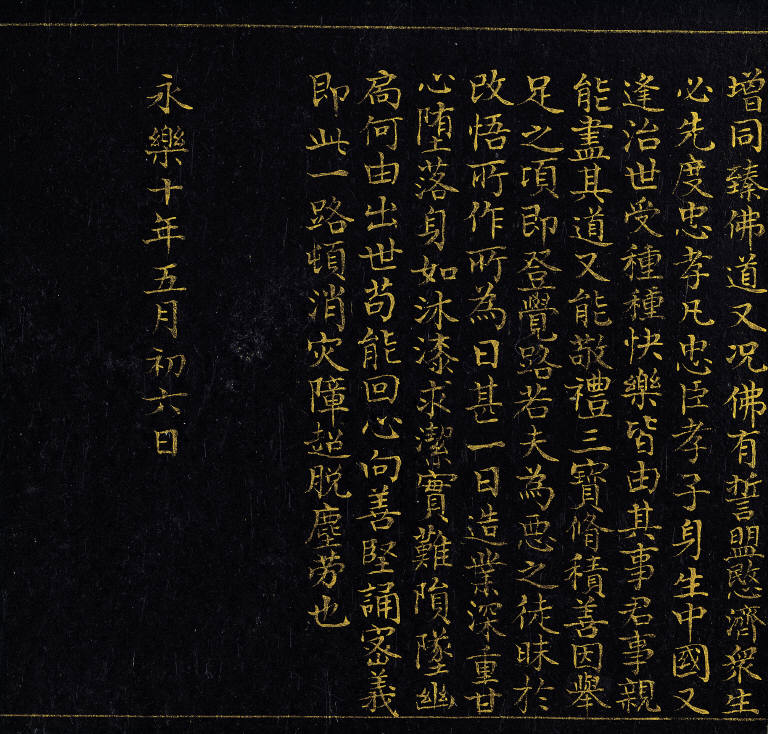 增同臻佛道又况佛有誓盟愍濟衆生
必先度忠孝凡忠臣孝子身生中國又
逢治世受種種快樂皆由其事君事親
能盡其道又能敬禮三寳脩積善因舉
足之頃即登覺路若夫為惡之徒昧於
改悟所作所為日甚一日造業深重甘
心墮落身如沐漆求潔實難隕墜幽
扃何由出世苟能回心向善堅誦宻義
即此一路頓消灾障超脱塵勞也
永樂十年五月初六日